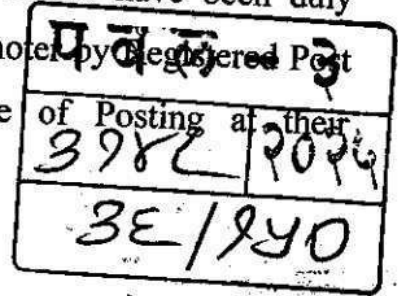 have been duly
noter by Registered Post
प व ल - ३
e of Posting at their
३१४८ २०२५
३६/१५०